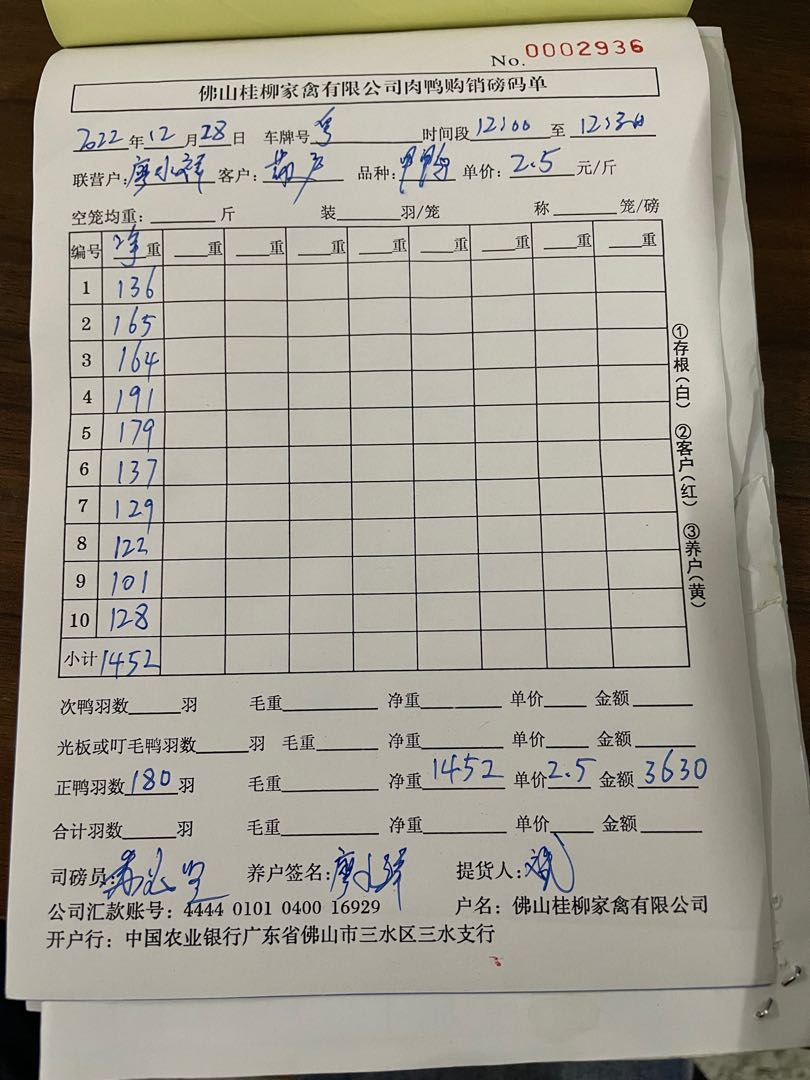 No. 0002936
佛山桂柳家禽有限公司肉鸭购销磅码单
2022年12月28日 车牌号 粤 时间段 12:00 至 12:30
联营户:廖水祥 客户: 品种: 单价:2.5元/斤
空笼均重:____斤 装____羽/笼 称____笼/磅
编号 净重 __重 __重 __重 __重 __重 __重 __重 __重
1 136
2 165
3 164
4 191
5 179
6 137
7 129
8 122
9 101
10 128
小计 1452
①存根(白) ②客户(红) ③养户(黄)
次鸭羽数____羽 毛重____ 净重____ 单价____ 金额____
光板或叮毛鸭羽数____羽 毛重____ 净重____ 单价____ 金额____
正鸭羽数180羽 毛重____ 净重1452 单价2.5 金额3630
合计羽数____羽 毛重____ 净重____ 单价____ 金额____
司磅员: 养户签名:廖水祥 提货人:
公司汇款账号:4444 0101 0400 16929 户名:佛山桂柳家禽有限公司
开户行:中国农业银行广东省佛山市三水区三水支行